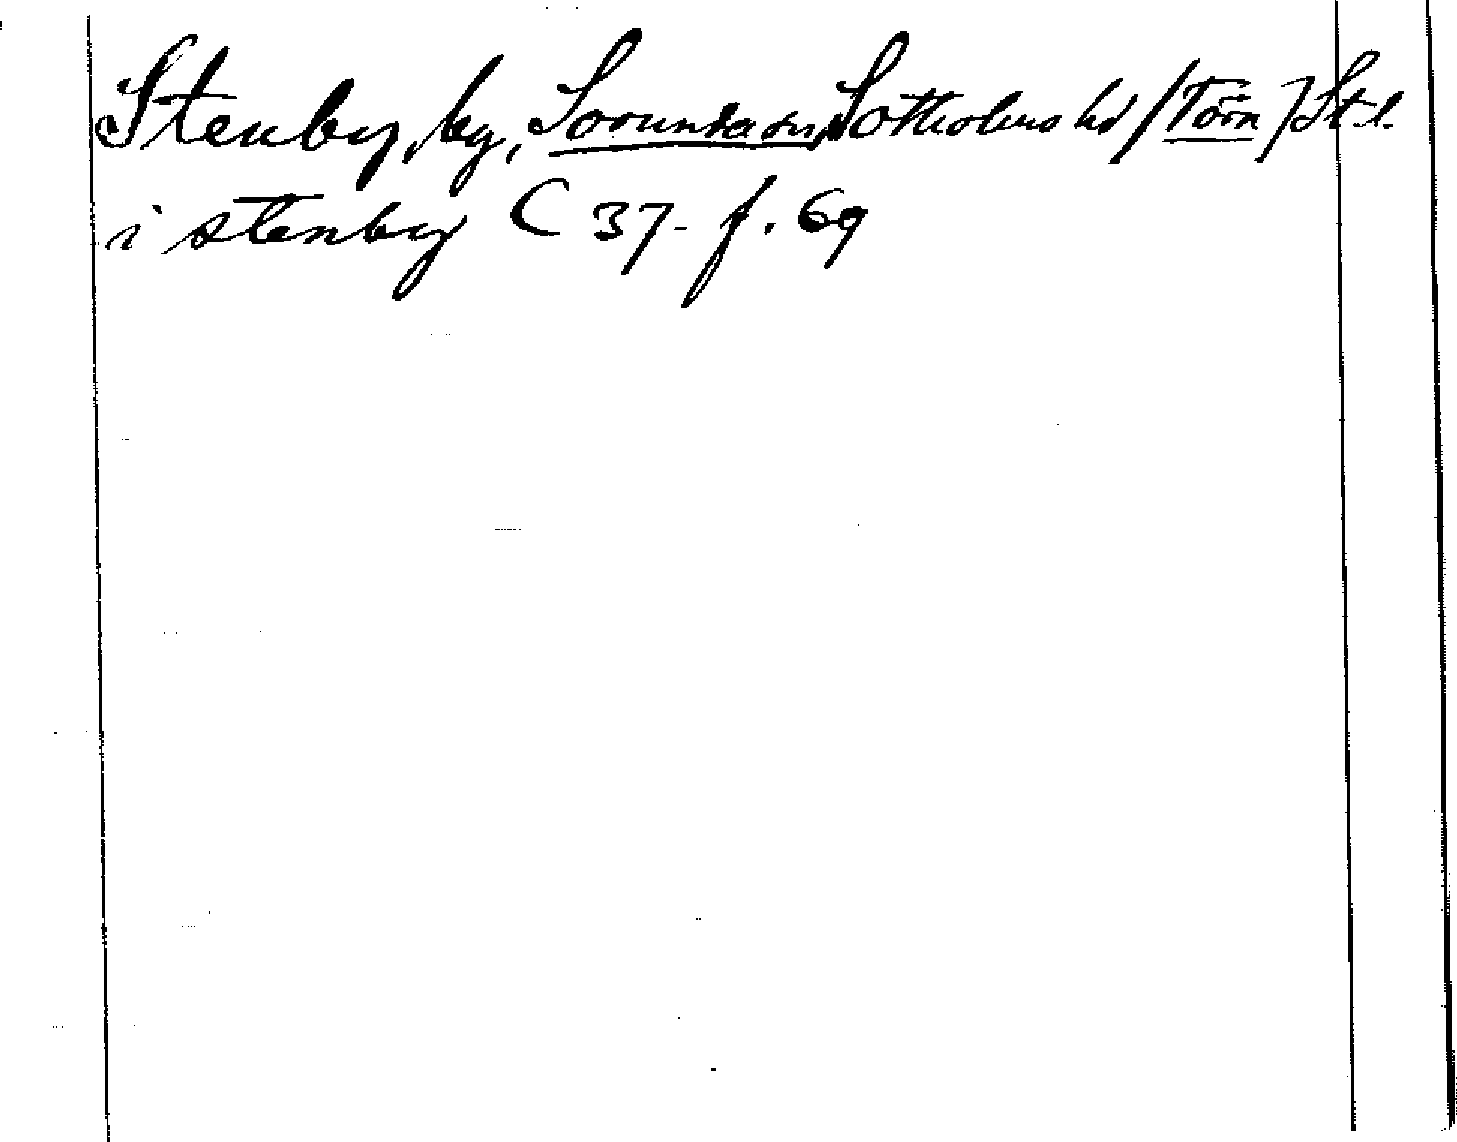 Stenby, by, Sorunda sn, Sotholms hd /Törn/ St. l.
i stenby C 37- f. 69